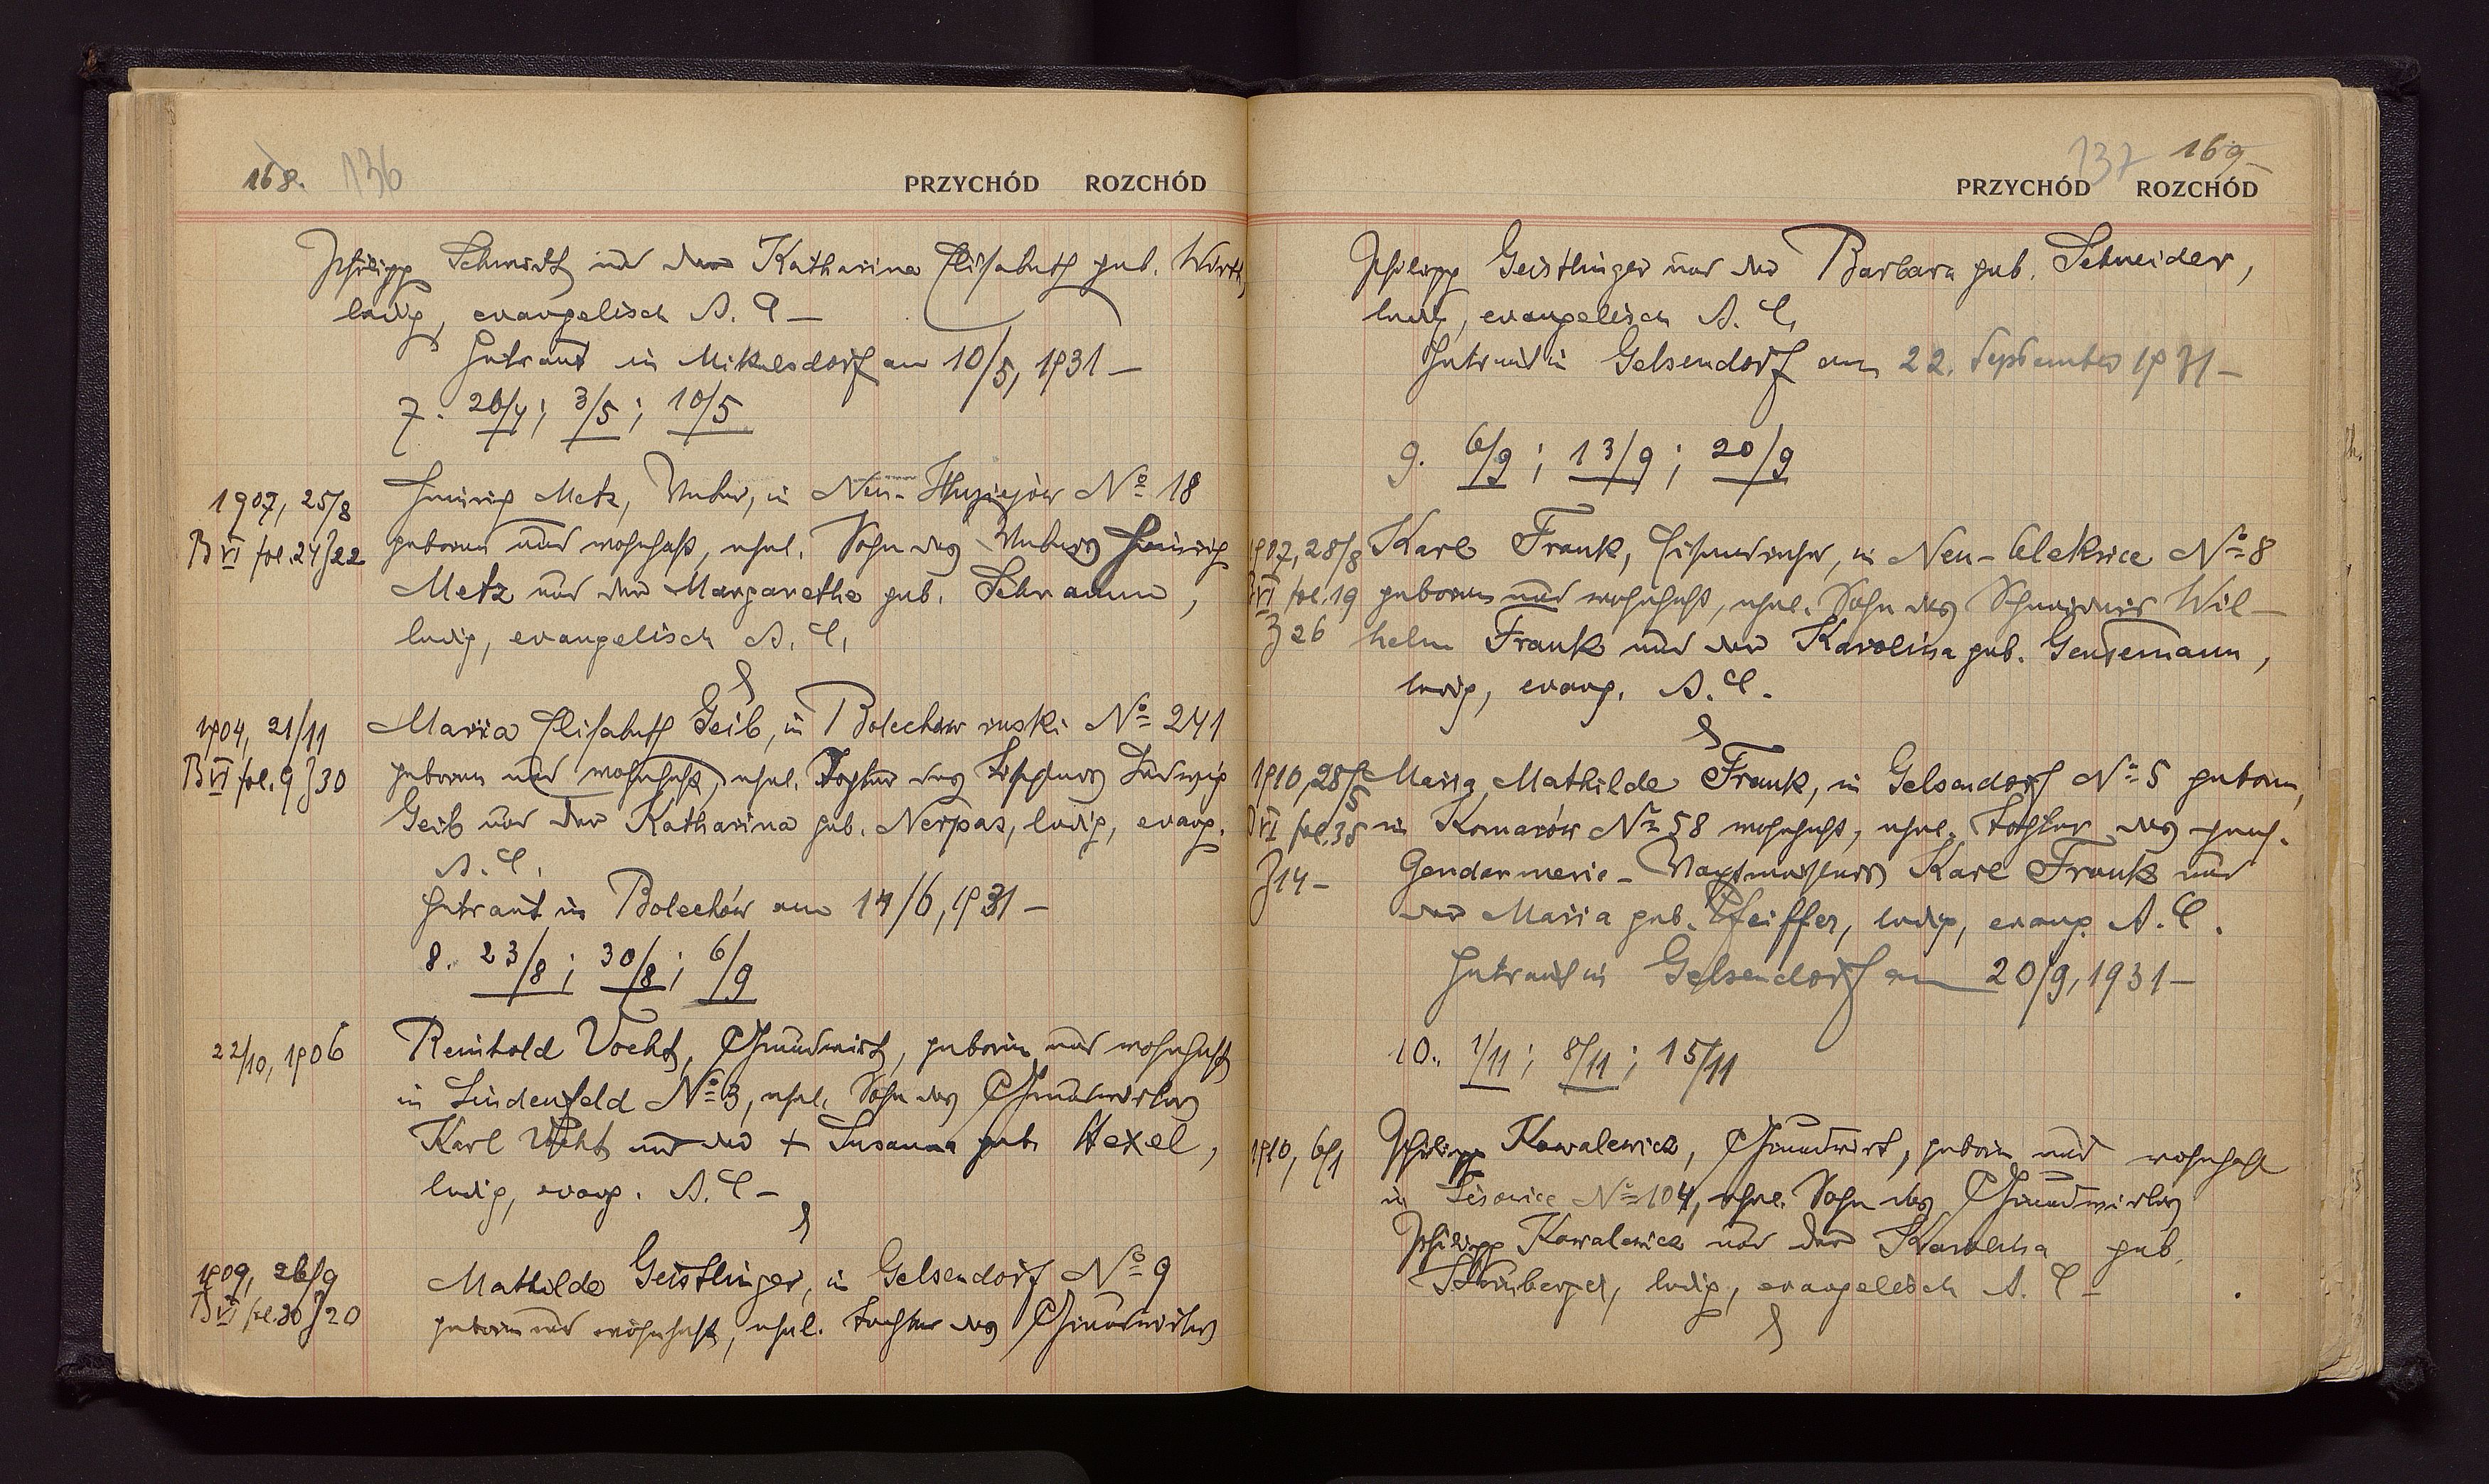 168. 136
PRZYCHÓD ROZCHÓD
Philipp Schmidt und der Katharina Elisabeth geb. Wirth,
ledig, evangelisch A. C. —
Getraut in Mikulsdorf am 10/5, 1931 —
7. 26/4; 3/5; 10/5
1907, 25/8
B VI fol. 24 Z 22
Heinrich Metz, Weber, in Neu- No 18
geboren und wohnhaft, ehel. Sohn des Webers Heinrich
Metz und der Margarethe geb. Schramm,
ledig, evangelisch A. C.
§
1904, 21/11
B VI fol. 9 Z 30
Maria Elisabeth Geib, in Bolechow ruski No 241
geboren und wohnhaft, ehel. Tochter des Tischlers Ludwig
Geib und der Katharina geb. Nerpas, ledig, evang.
A. C.
Getraut in Bolechów am 14/6, 1931 —
8. 23/8; 30/8; 6/9
22/10, 1906
Reinhold Vocht, Grundwirt, geboren und wohnhaft
in Lindenfeld No 3, ehel. Sohn des Grundwirtes
Karl Vocht und der + Susanna geb. Hexel,
ledig, evang. A. C —
§
1909, 26/9
B VI fol. 30 Z 20
Mathilde Geistlinger, in Gelsendorf No 9
geboren und wohnhaft, ehel. Tochter des Grundwirtes
137 169
PRZYCHÓD ROZCHÓD
Philipp Geistlinger und der Barbara geb. Schneider,
ledig, evangelisch A. C.
Getraut in Gelsendorf am 22. September 1931 —
9. 6/9; 13/9; 20/9
1907, 28/8
B VI fol. 19
Z 26
Karl Frank, Eisendreher, in Neu-Oleksice No 8
geboren und wohnhaft, ehel. Sohn des Schneiders Wil-
helm Frank und der Karolina geb. Gensemann,
ledig, evang. A. C.
§
1910, 28/5
B VI fol. 38
Z 14 —
Maria Mathilde Frank, in Gelsendorf No 5 geboren,
in Komarów No 58 wohnhaft, ehel. Tochter des pens.
Gendarmerie-Wachtmeisters Karl Frank und
der Maria geb. Pfeiffer, ledig, evang. A. C.
Getraut in Gelsendorf am 20/9, 1931 —
10. 1/11; 8/11; 15/11
1910, 6/1
Philipp Kowalewicz, Grundwirt, geboren und wohnhaft
in Lisowice No 104, ehel. Sohn des Grundwirtes
Philipp Kowalewicz und der Karolina geb.
ledig, evangelisch A. C —
§